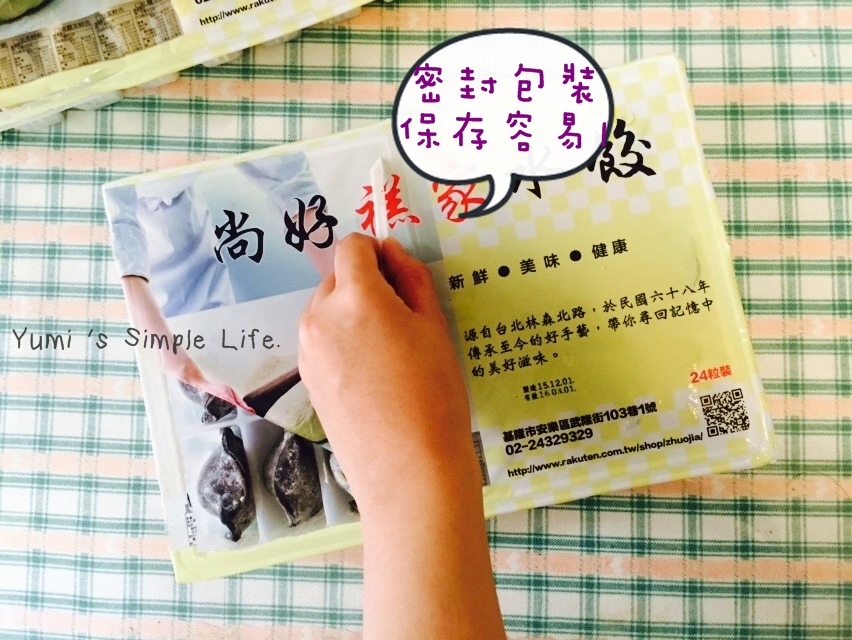 http://www.rakuten
密封包裝
保存容易!
尚好禚家水餃
新鮮●美味●健康
源自台北林森北路，於民國六十八年
傳承至今的好手藝，帶你尋回記憶中
的美好滋味。
製造15.12.01.
有效16.03.01.
24粒裝
基隆市安樂區武隆街103巷1號
02-24329329
http://www.rakuten.com.tw/shop/zhuojia/
Yumi 's Simple Life.